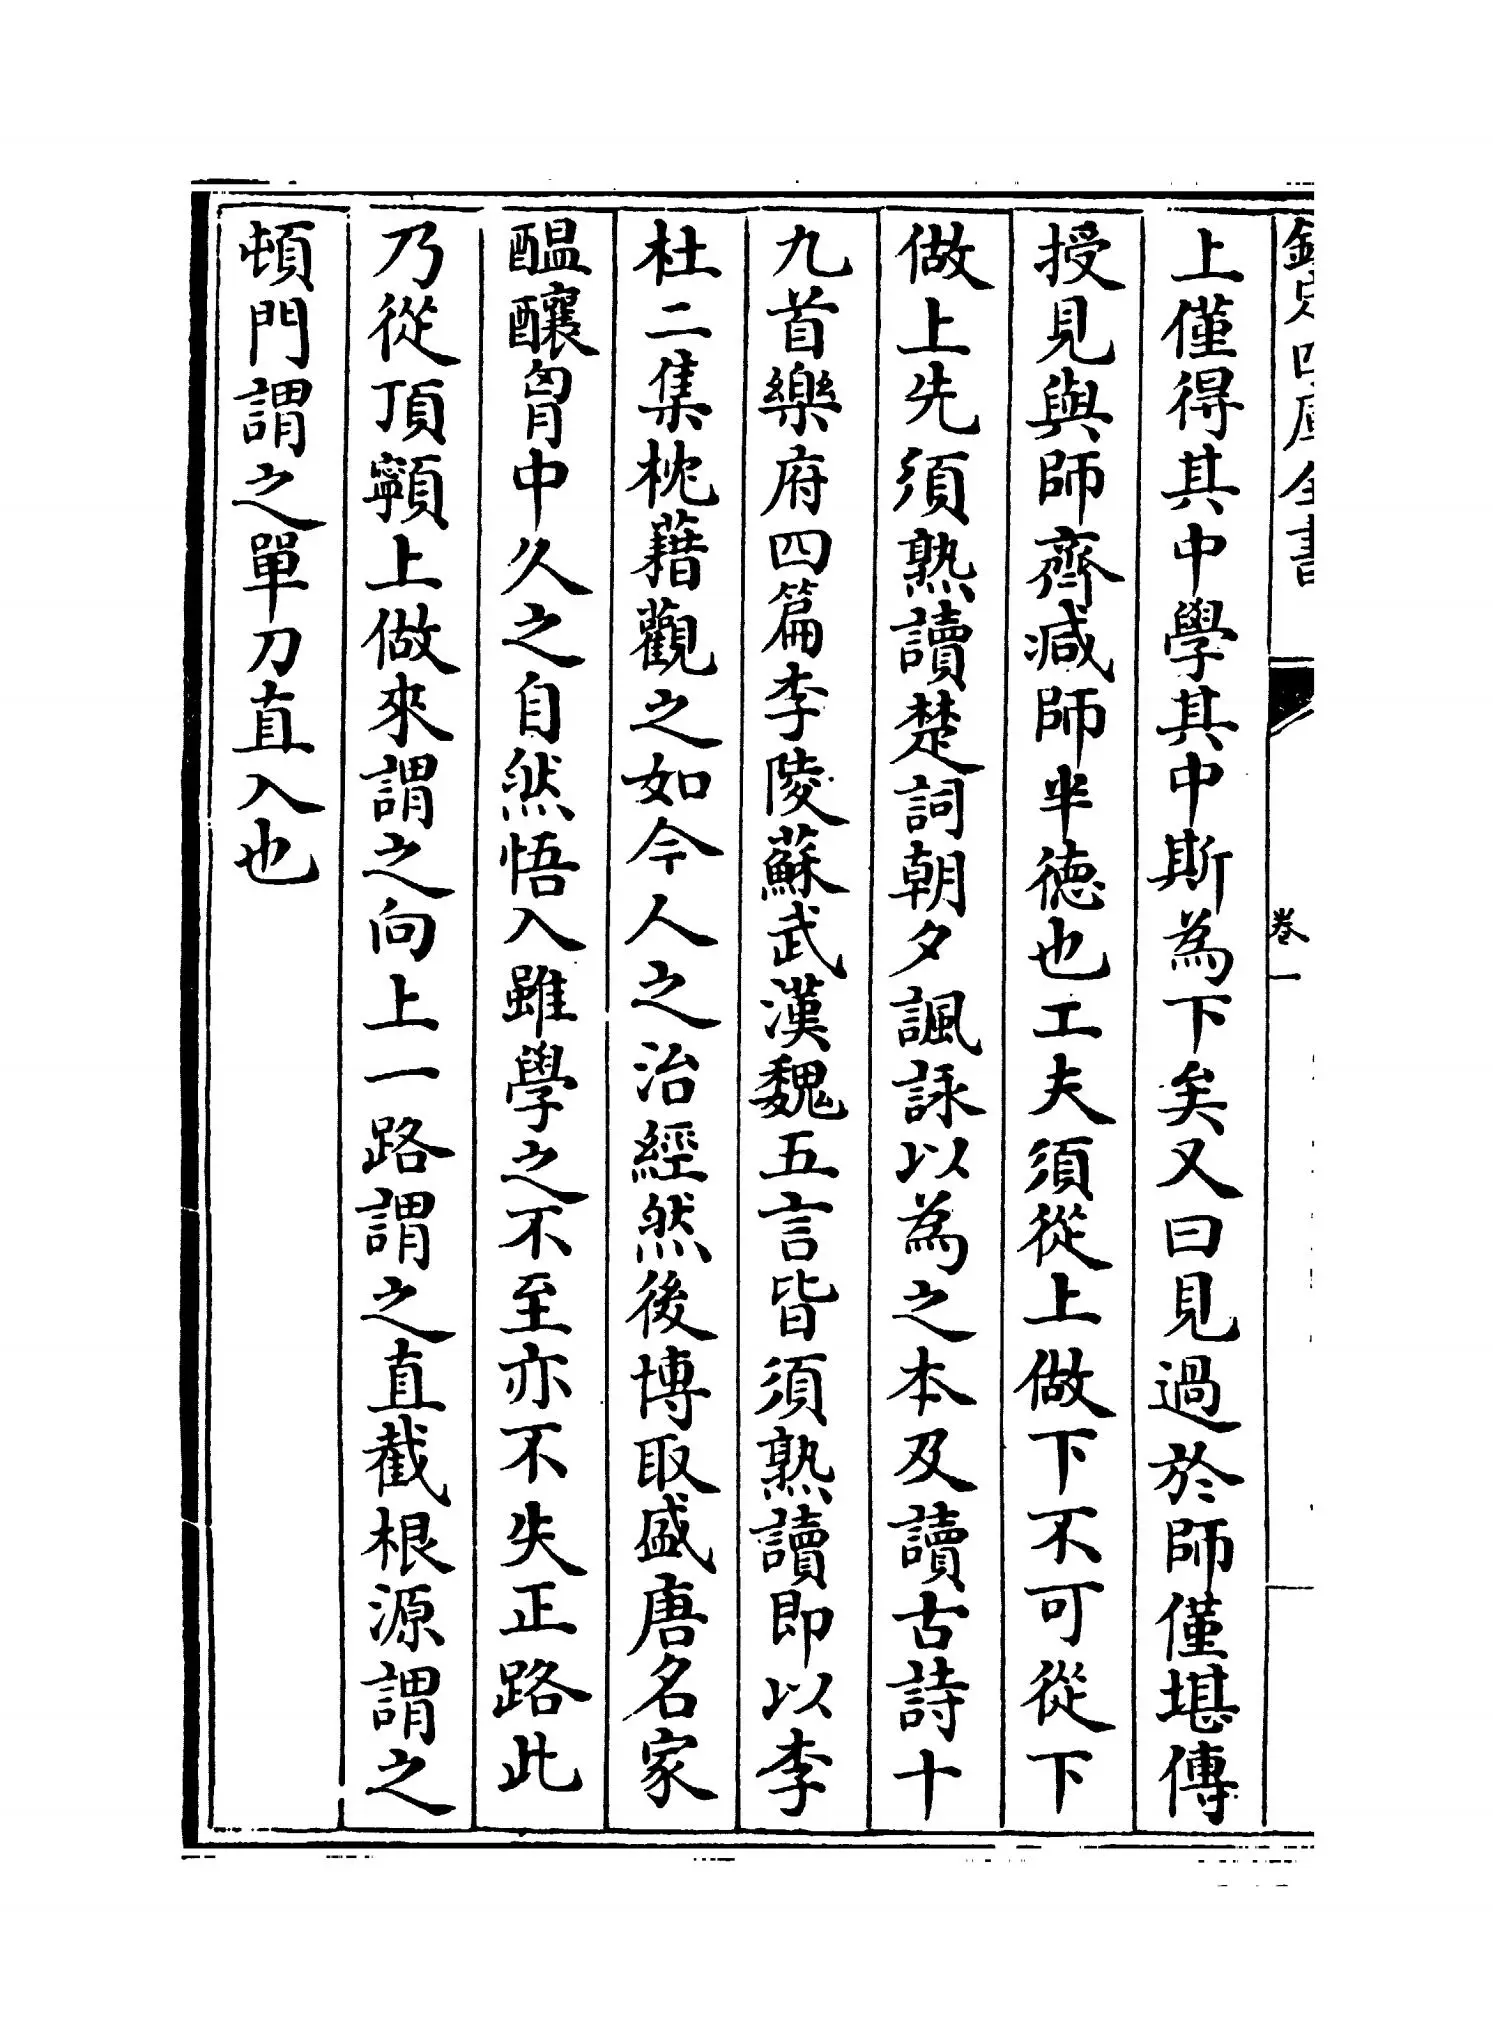 欽定四庫全書
卷一
上僅得其中學其中斯為下矣又曰見過於師僅堪傳
授見與師齊減師半德也工夫須從上做下不可從下
做上先須熟讀楚詞朝夕諷詠以為之本及讀古詩十
九首樂府四篇李陵蘇武漢魏五言皆須熟讀即以李
杜二集枕藉觀之如今人之治經然後博取盛唐名家
醖釀胷中久之自然悟入雖學之不至亦不失正路此
乃從頂𩕳上做來謂之向上一路謂之直截根源謂之
頓門謂之單刀直入也